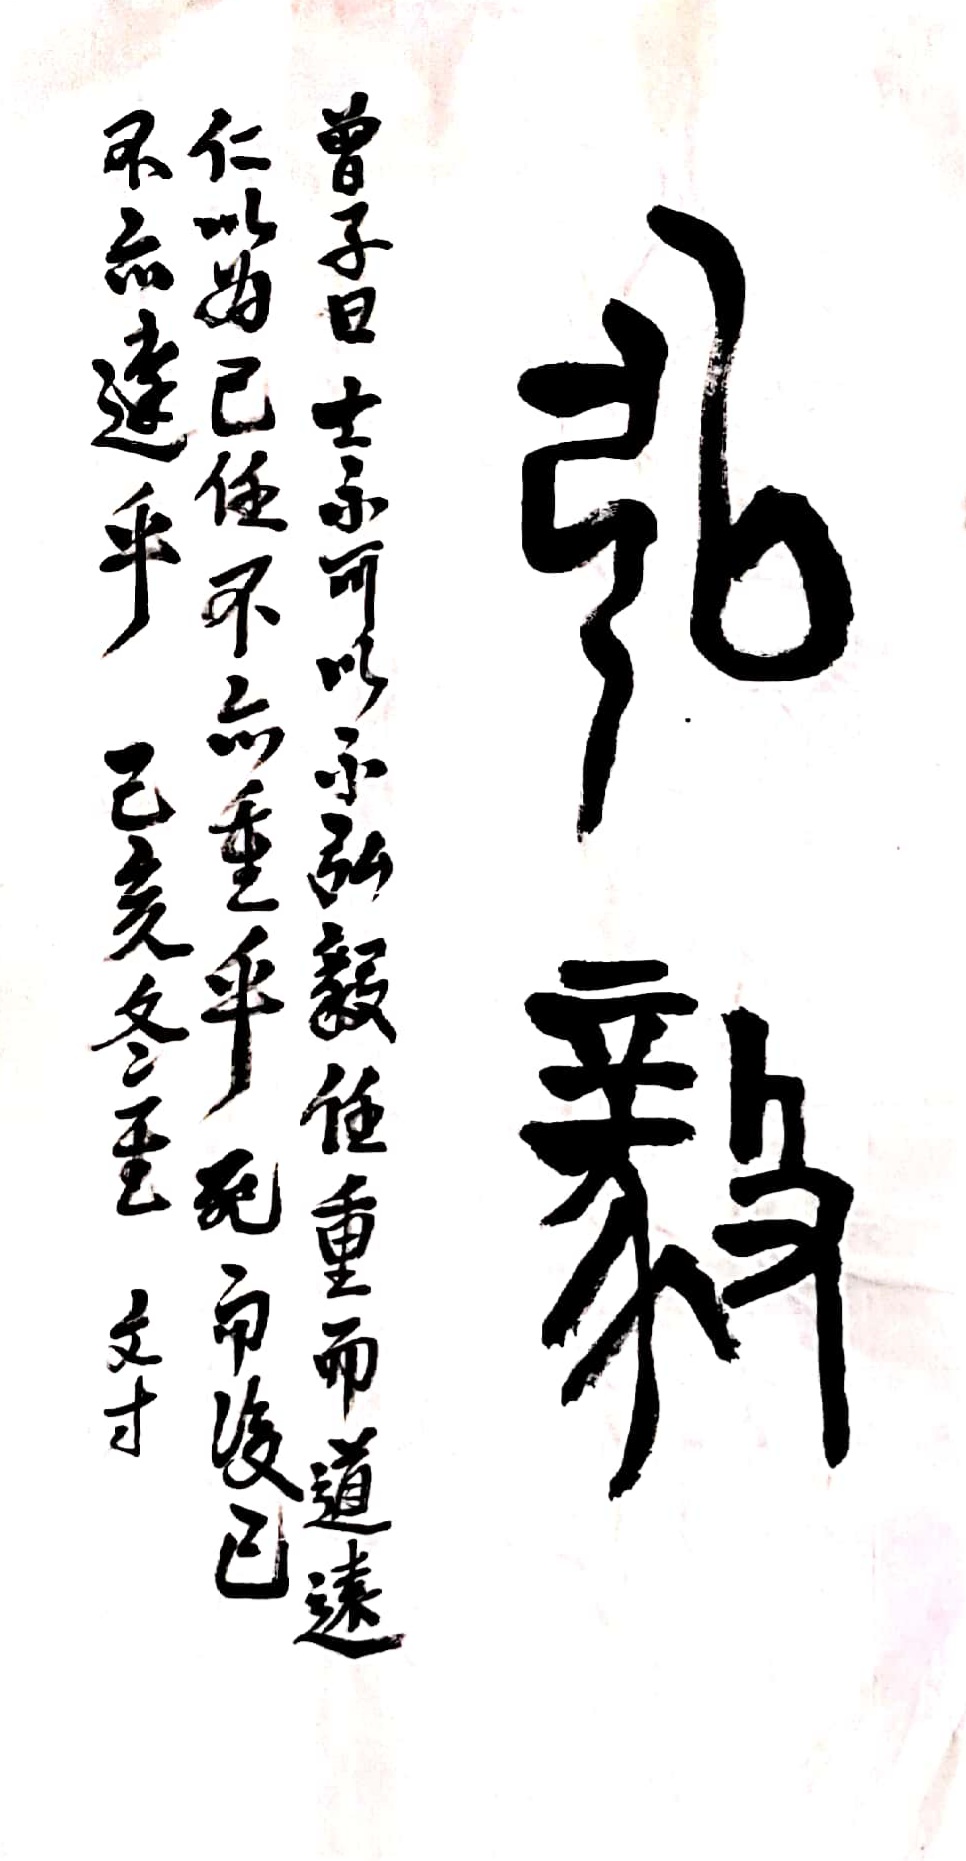 弘毅
曾子曰士不可以不弘毅任重而道遠
仁以為己任不亦重乎死而後已
不亦遠乎 己亥冬至 文寸